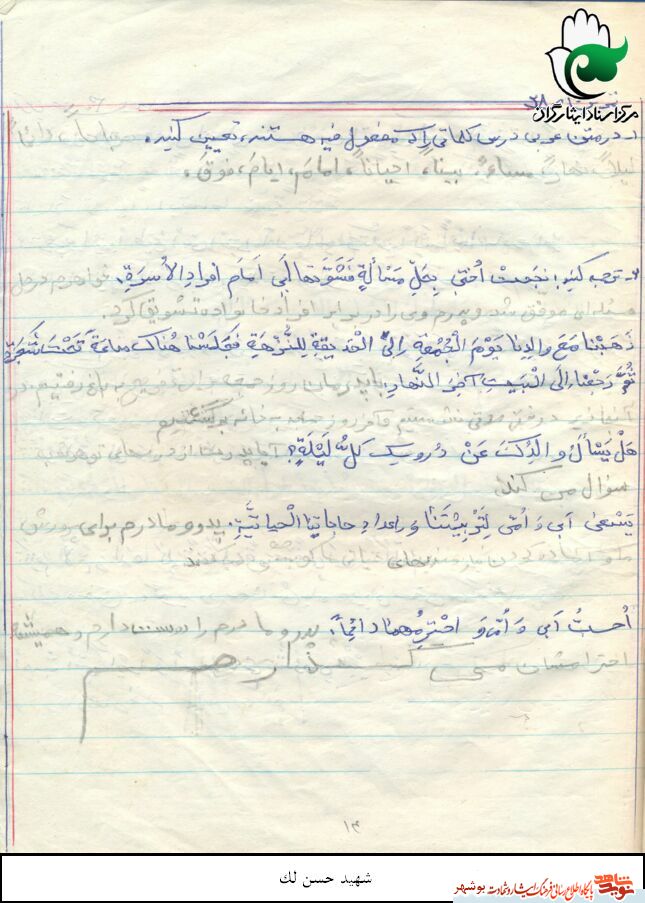 مرکز اسناد ایثارگران
۱- در متن عربی درس کلماتی را که مفعول فیه هستند، تعیین کنید.
لیلاً، نهاراً، مساءً، بینا، احیاناً، امامَ، ایامَ، فوقَ،
۲- ترجمه کنید: نَجَحتْ اُختی بِحَلِّ مَسْألَةٍ فَشَوَّقَها أبی اَمامَ افرادِ الأُسرَةِ. خواهرم در حل
مسئله‌ای موفق شد و پدرم وی را در برابر افراد خانواده تشویق کرد.
ذَهَبْنا مَعَ والِدِنا یَوْمَ الْجُمُعَةِ اِلیَ الْحَدیقَةِ لِلنُّزهَةِ فَجَلَسْنا هُناکَ ساعَةً تَحْتَ شَجَرَةٍ
ثُمَّ رَجَعْنا اِلَی الْبَیتِ آخِرَ النَّهارِ. با پدرمان روز جمعه برای تفریح به باغ رفتیم. در
آنجا زیر درختی نشستیم و آخر روز به خانه برگشتیم
هَلْ یَسْألُ والِدُکَ عَنْ دُروسِکَ کُلَّ لَیْلَةٍ؟ آیا پدرت از درسهای تو هر شب
سوال می کند.
یَسْعی اَبی وَ اُمّی لِتَرْبِیَتَنا وَ اِعدادِ حاجاتِنا الْحَیاتیَّةِ. پدر و مادرم برای پرورش
ما و آماده کردن
اُحِبُّ اَبی وَ اُمّی وَ اَحْتَرِمُهُما دائِماً. پدر و مادرم را دوست دارم و همیشه
احترامشان می گذارم
۱۳
شهید حسن لک
نوید شاهد
پایگاه اطلاع رسانی فرهنگ ایثار و شهادت بوشهر